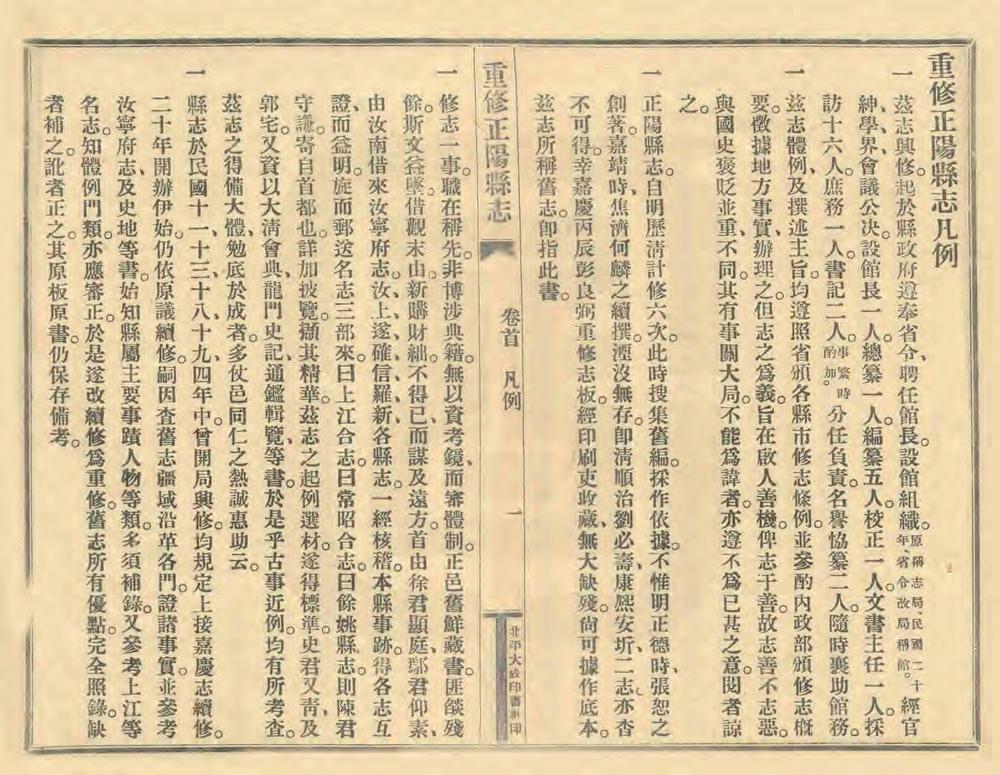 重修正陽縣志凡例
一 茲志興修。起於縣政府遵奉省令、聘任館長。設館組織。原稱志局、民國二十年、省令改局稱館。經官
紳、學界、會議公决、設館長一人、總纂一人、編纂五人。校正一人。文書主任一人。採
訪十六人。庶務一人。書記二人。事繁時酌加。分任負責。名譽協纂二人。隨時襄助館務。
一 茲志體例、及撰述主旨。均遵照省頒各縣市修志條例。並參酌內政部頒修志概
要。徵據地方事實、辦理之。但志之爲義。旨在啟人善機。俾志于善。故志善不志惡。
與國史褒貶並重不同。其有事關大局。不能爲諱者。亦遵不爲已甚之意。閱者諒
之。
一 正陽縣志。自明歷淸計修六次。此時搜集舊編。採作依據。不惟明正德時、張恕之
創著。嘉靖時、焦濟何麟之續撰。湮沒無存。卽淸順治劉必壽、康熙安圻、二志亦杳
不可得。幸嘉慶丙辰彭良弼重修志板。經印刷吏收藏、無大缺殘。尙可據作底本。
茲志所稱舊志。卽指此書。
重修正陽縣志
卷首 凡例
一
北平大成印書社印
一 修志一事。職在稱先。非博涉典籍。無以資考鏡、而審體制。正邑舊鮮藏書。匪燄殘
餘。斯文益墜。借觀末由。新購財絀。不得已、而謀及遠方。首由徐君顯庭、鄢君仰素、
由汝南借來汝寧府志。汝上、遂確信羅新各縣志。一經核稽。本縣事跡。得各志互
證、而益明。旋而郵送名志三部來。曰上江合志。曰常昭合志。曰餘姚縣志。則陳君
守謙。寄自首都也。詳加披覽。擷其精華。茲志之起例選材。遂得標準。史君又靑、及
郭宅。又資以大淸會典、龍門史記、通鑑輯覽、等書。於是乎古事近例。均有所考查。
茲志之得備大體。勉底於成者。多仗邑同仁之熱誠惠助云。
一 縣志於民國十一、十三、十八、十九、四年中。曾開局興修。均規定上接嘉慶志續修。
二十年開辦伊始。仍依原議續修。嗣因查舊志疆域沿革各門。證諸事實。並參考
汝寧府志、及史地等書。始知縣屬主要事蹟、人物等類。多須補錄。又參考上江等
名志。知體例門類。亦應審正。於是遂改續修爲重修。舊志所有優點。完全照錄。缺
者補之。訛者正之。其原板原書。仍保存備考。